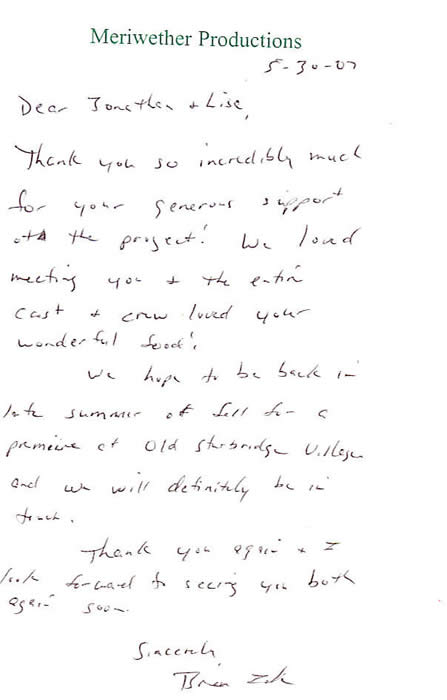 Meriwether Productions
5-30-07
Dear Jonathan + Lise,
Thank you so incredibly much
for your generous support
of the project! We loved
meeting you + the entire
cast + crew loved your
wonderful food!
We hope to be back in
late summer of fall for a
premeire at Old Sturbridge Village
and we will definitely be in
touch.
Thank you again + I
look forward to seeing you both
again soon.
Sincerely,
Brian